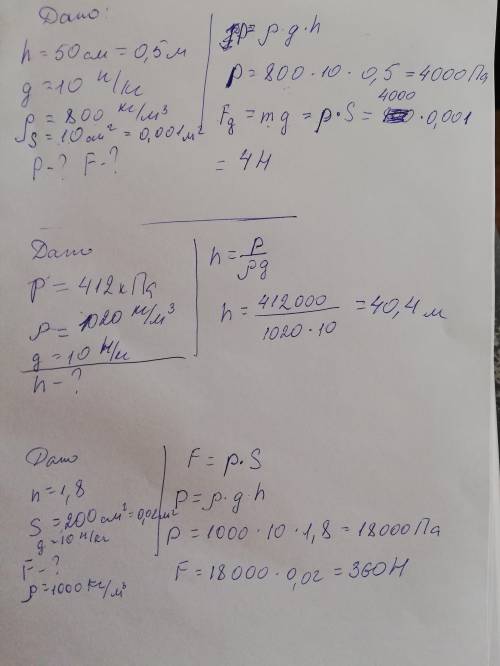 Дано:
h = 50 см = 0,5 м
g = 10 Н/кг
ρ = 800 кг/м³
S = 10 см² = 0,001 м²
P - ? F - ?
P = ρ · g · h
P = 800 · 10 · 0,5 = 4000 Па
4000
Fg = mg = p · S = · 0,001
= 4Н
Дано
P = 412 кПа
ρ = 1020 кг/м³
g = 10 Н/кг
h - ?
h = P / ρg
h = 412000 / 1020 · 10 = 40,4 м
Дано
h = 1,8
S = 200 см² = 0,02 м²
g = 10 Н/кг
F - ?
ρ = 1000 кг/м³
F = p · S
P = ρ · g · h
P = 1000 · 10 · 1,8 = 18000 Па
F = 18000 · 0,02 = 360 Н